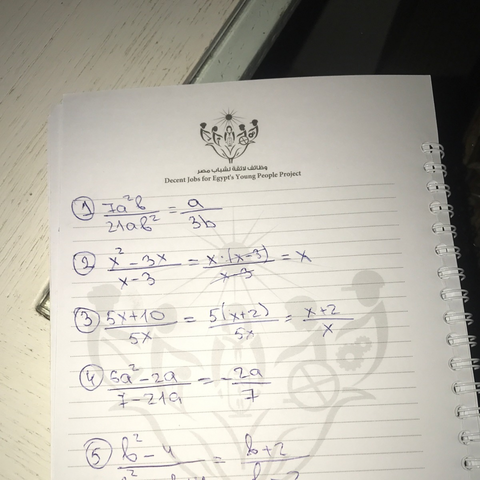 وظائف لائقة لشباب مصر
Decent Jobs for Egypt's Young People Project
① 7a²b / 21ab² = a / 3b
② x² - 3x / x-3 = x·(x-3) / x-3 = x
③ 5x+10 / 5x = 5(x+2) / 5x = x+2 / x
④ 6a² - 2a / 7-21a = -2a / 7
⑤ b² - 4 / = b+2 /